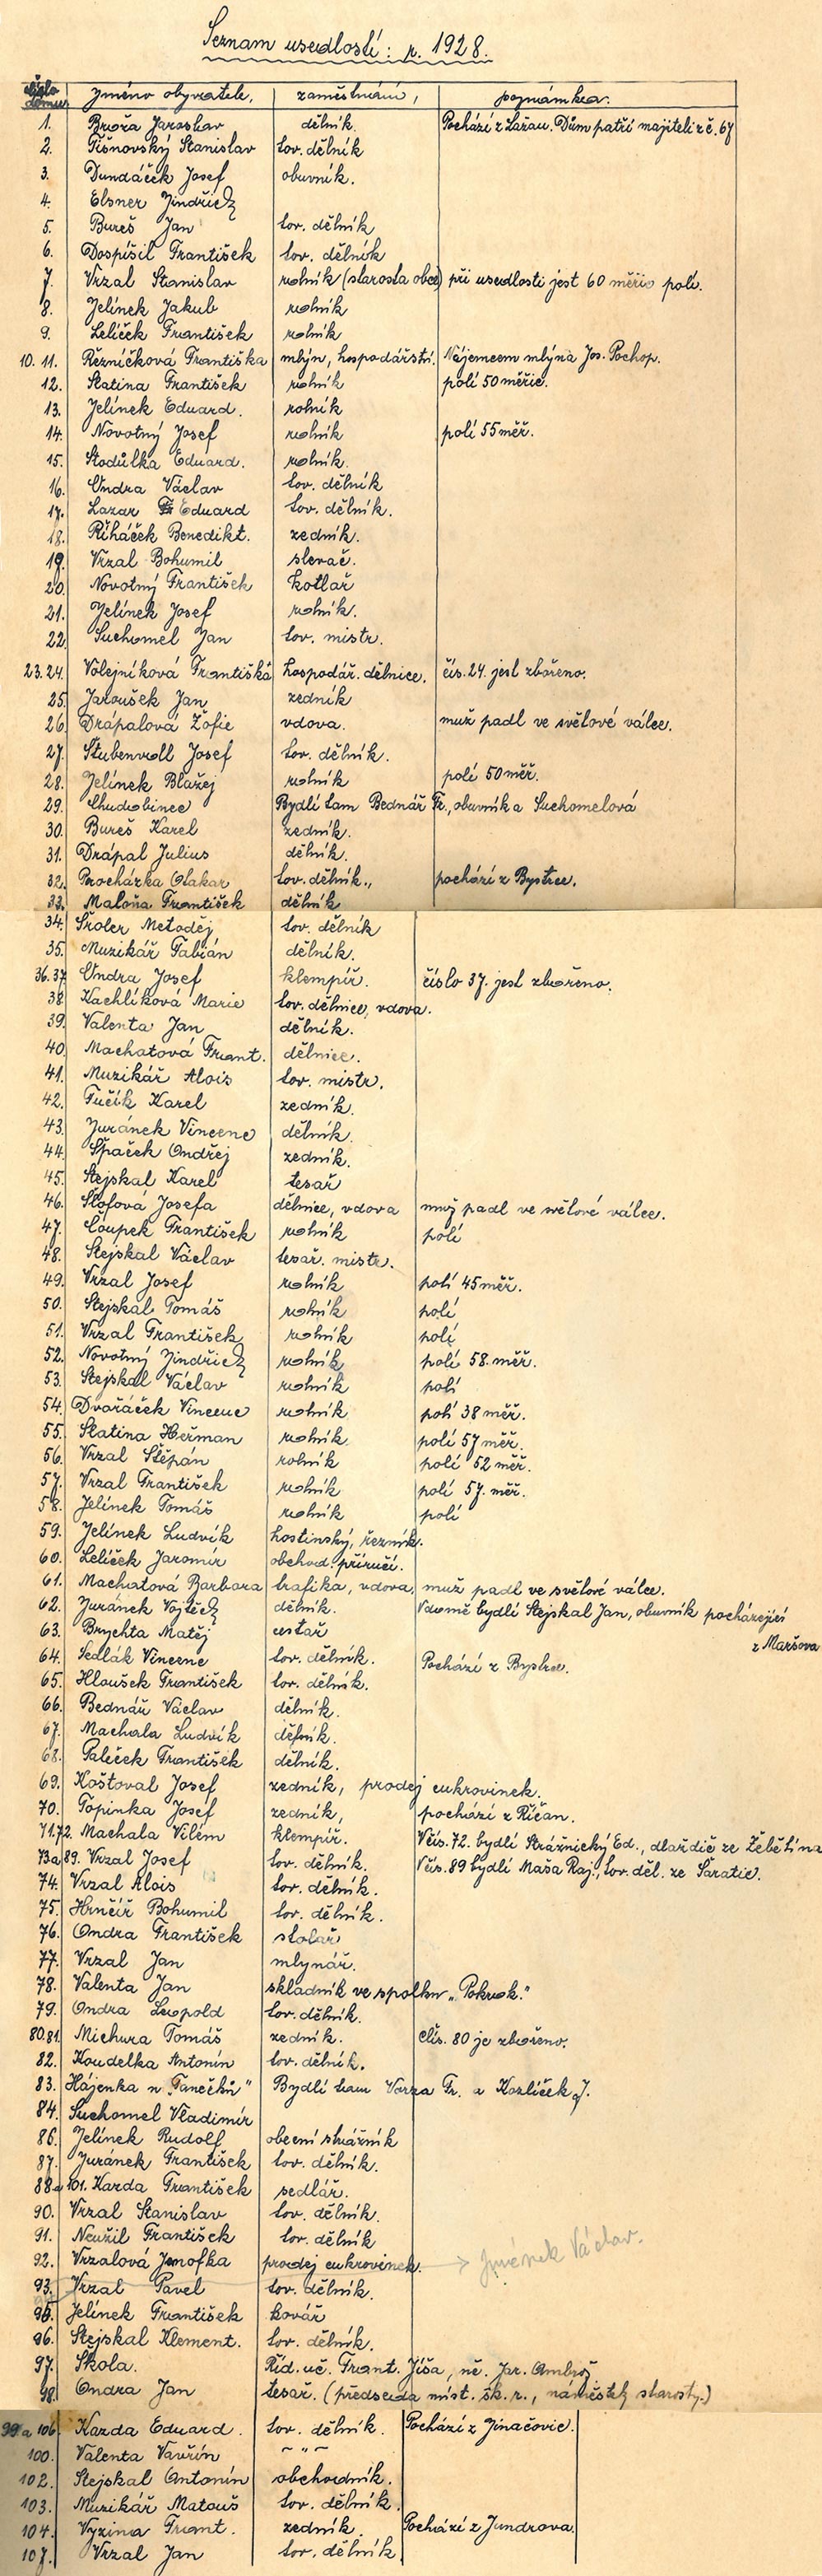 Seznam usedlostí: r. 1928.
číslo domu jméno obyvatele, zaměstnání, poznámka.
1. Broža Jaroslav dělník. Pochází z Lažan. Dům patří majiteli z č. 67
2. Tišnovský Stanislav tov. dělník
3. Dundáček Josef obuvník.
4. Elsner Jindřich
5. Bureš Jan tov. dělník
6. Dospíšil František tov. dělník
7. Vrzal Stanislav rolník (starosta obce) při usedlosti jest 60 měřic polí.
8. Jelínek Jakub rolník
9. Lelíček František rolník
10. 11. Řezníčková Františka mlýn, hospodářství. Nájemcem mlýna Jos. Pochop.
12. Slatina František rolník polí 50 měřic.
13. Jelínek Eduard. rolník
14. Novotný Josef rolník polí 55 měř.
15. Stodůlka Eduard. rolník.
16. Ondra Václav tov. dělník
17. Lazar Eduard tov. dělník.
18. Řiháček Benedikt. zedník.
19. Vrzal Bohumil slevač.
20. Novotný František kotlář
21. Jelínek Josef rolník.
22. Suchomel Jan tov. mistr.
23. 24. Volejníková Františka hospodář. dělnice. čís. 24. jest zbořeno.
25. Jaroušek Jan zedník
26. Drápalová Žofie vdova. muž padl ve světové válce.
27. Stubenvoll Josef tov. dělník.
28. Jelínek Blažej rolník polí 50 měř.
29. Chudobinec Bydlí tam Bednář Fr., obuvník a Suchomelová
30. Bureš Karel zedník.
31. Drápal Julius dělník.
32. Procházka Otakar tov. dělník., pochází z Bystrce.
33. Maloňa František dělník
34. Šoler Metoděj tov. dělník
35. Muzikář Fabián dělník.
36. 37. Ondra Josef klempíř. číslo 37. jest zbořeno.
38. Kachlíková Marie tov. dělnice, vdova.
39. Valenta Jan dělník.
40. Machatová Frant. dělnice.
41. Muzikář Alois tov. mistr.
42. Fučík Karel zedník.
43. Juránek Vincenc dělník.
44. Špaček Ondřej zedník.
45. Stejskal Karel tesař
46. Štofová Josefa dělnice, vdova muž padl ve světové válce.
47. Coupek František rolník polí
48. Stejskal Václav tesař. mistr.
49. Vrzal Josef rolník polí 45 měř.
50. Stejskal Tomáš rolník polí
51. Vrzal František rolník polí
52. Novotný Jindřich rolník polí 58. měř.
53. Stejskal Václav rolník polí
54. Dvořáček Vincenc rolník polí 38 měř.
55. Slatina Heřman rolník polí 57 měř.
56. Vrzal Štěpán rolník polí 52 měř.
57. Vrzal František rolník polí 57. měř.
58. Jelínek Tomáš rolník polí
59. Jelínek Ludvík hostinský, řezník.
60. Lelíček Jaromír obchod. příručí.
61. Machatová Barbora trafika, vdova, muž padl ve světové válce.
62. Juránek Vojtěch dělník. V domě bydlí Stejskal Jan, obuvník pocházející
z Maršova
63. Brychta Matěj cestař
64. Sedlák Vincenc tov. dělník. Pochází z Bystrce.
65. Hloušek František tov. dělník.
66. Bednář Václav dělník.
67. Machala Ludvík dělník.
68. Paleček František dělník.
69. Koštoval Josef zedník, prodej cukrovinek.
70. Topinka Josef zedník, pochází z Říčan.
71. 72. Machala Vilém klempíř. V čís. 72. bydlí Strážnický Ed., dlaždič ze Žebětína
73 a 89. Vrzal Josef tov. dělník. V čís. 89 bydlí Maša Raj., tov. děl. ze Šaratic.
74. Vrzal Alois tov. dělník.
75. Hrnčíř Bohumil tov. dělník.
76. Ondra František stolař
77. Vrzal Jan mlynář.
78. Valenta Jan skladník ve spolku „Pokrok."
79. Ondra Leopold tov. dělník.
80. 81. Michura Tomáš zedník. čís. 80 je zbořeno.
82. Koudelka Antonín tov. dělník.
83. Hájenka u „Tanečků" Bydlí tam Varza Fr. a Kozlíček J.
84. Suchomel Vladimír
86. Jelínek Rudolf obecní strážník
87. Juránek František tov. dělník.
88 a 101. Karda František sedlář.
90. Vrzal Stanislav tov. dělník.
91. Neužil František tov. dělník
92. Vrzalová Jenofka prodej cukrovinek. Juránek Václav.
93. Vrzal Pavel tov. dělník.
95. Jelínek František kovář
96. Stejskal Klement. tov. dělník.
97. Škola. Říd. uč. Frant. Jíša, uč. Jar. Ambrož
98. Ondra Jan tesař. (předseda míst. šk. r., náměstek starosty.)
99 a 106. Kazda Eduard. tov. dělník. Pochází z Jinačovic.
100. Valenta Vavřín ~ " ~
102. Stejskal Antonín obchodník.
103. Muzikář Matouš tov. dělník.
104. Vyzina Frant. zedník. Pochází z Jundrova.
107. Vrzal Jan tov. dělník